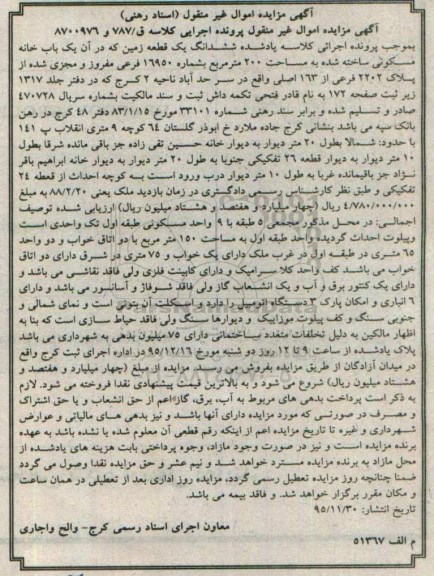 آگهی مزایده اموال غیر منقول (اسناد رهنی)
آگهی مزایده اموال غیر منقول پرونده اجرایی کلاسه ق/۷۸۷ و ۸۷۰۰۹۷۶
بموجب پرونده اجرائی کلاسه یادشده ششدانگ یک قطعه زمین که در آن یک باب خانه
مسکونی ساخته شده به مساحت ۲۰۰ مترمربع بشماره ۱۶۹۵۰ فرعی مفروز و مجزی شده از
پلاک ۲۲۰۲ فرعی از ۱۶۳ اصلی واقع در سر حد آباد ناحیه ۲ کرج که در دفتر جلد ۱۳۱۷
زیر ثبت صفحه ۱۷۲ به نام قادر فتحی تکمه داش ثبت و سند مالکیت بشماره سریال ۴۷۰۷۲۸
صادر و تسلیم شده و برابر سند رهنی شماره ۳۳۱۰۱ مورخ ۸۳/۱/۱۵ دفتر ۴۸ کرج در رهن
بانک سپه می باشد بنشانی کرج جاده ملارد خ ابوذر گلستان ۶۴ کوچه ۹ متری انقلاب پ ۱۴۱
با حدود: شمالا بطول ۲۰ متر دیوار به دیوار خانه حسین تقی زاده جز باقی مانده شرقا بطول
۱۰ متر دیوار به دیوار قطعه ۲۶ تفکیکی جنوبا به طول ۲۰ متر دیوار به دیوار خانه ابراهیم باقر
نژاد جز باقیمانده غربا به طول ۱۰ متر دیوار درب ورود است بـه کوچه احداث از قطعه ۲۴
تفکیکی و طبق نظر کارشناس رسمی دادگستری در زمان بازدید ملک یعنی ۸۸/۲/۲۰ به مبلغ
۴/۷۸۰/۰۰۰/۰۰۰ ریال (چهار میلیارد و هفتصد و هشتاد میلیون ریال) ارزیابی شده توصیف
اجمالی: در محـل مذکور مجتمعی ۵ طبقه با ۹ واحد مسکونی طبقه اول تک واحدی است
وپیلوت احداث گردیده واحد طبقه اول به مساحت ۱۵۰ متر مربع با دو اتاق خواب و دو واحد
۶۵ متری در طبقـه اول در غرب ملک دارای یک خواب و ۷۵ متری در شـرق دارای دو اتاق
خواب می باشـد کف واحد کلا سـرامیک و دارای کابینت فلزی ولی فاقد نقاشی می باشد و
دارای یک کنتور برق و آب و یک انشـعاب گاز ولی فاقد شـوفاژ و آسانسور می باشد و دارای
۶ انباری و امکان پارک ۳ دستگاه اتومبیل را دارد و اسـکلت آن بتونی است و نمای شمالی و
جنوبی سـنگ و کف پیلوت موزاییک و دیوارها سـنگ ولی فاقد حیاط سازی است که بنا به
اظهار مالکین به دلیل تخلفات متعدد سـاختمانی دارای ۷۵ میلیون بدهی به شهرداری می باشد
پلاک یادشده از ساعت ۹ تا ۱۲ روز دو شنبه مورخ ۹۵/۱۲/۱۶ در اداره اجرای ثبت کرج واقع
در میدان آزادگان از طریق مزایده بفروش می رسـد. مزایده از مبلغ (چهار میلیارد و هفتصد و
هشـتاد میلیون ریال) شروع می شود و به بالاترین قیمت پیشنهادی نقدا فروخته می شود. لازم
به ذکر است پرداخت بدهی های مربوط به آب، برق، گازاعم از حق انشعاب و یا حق اشتراک
و مصرف در صورتـی که مورد مزایده دارای آنها باشـد و نیز بدهی هـای مالیاتی و عوارض
شـهرداری و غیره تا تاریخ مزایده اعم از اینکه رقم قطعی آن معلوم شده یا نشده باشد به عهده
برنده مزایده است و نیز در صورت وجود مازاد، وجوه پرداختی بابت هزینه های یادشـده از
محل مازاد به برنده مزایده مسـترد خواهد شـد و نیم عشر و حق مزایده نقدا وصول می گردد
ضمنا چنانچه روز مزایده تعطیل رسمی گردد، مزایده روز اداری بعد از تعطیلی در همان ساعت
و مکان مقرر برگزار خواهد شد. و فاقد بیمه می باشد.
تاریخ انتشار: ۹۵/۱۱/۳۰
معاون اجرای اسناد رسمی کرج- والح واجاری
م الف ۵۱۳۶۷